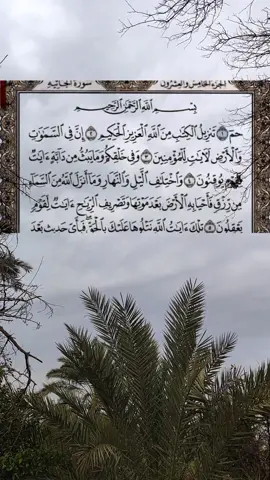 الجزء الخامس والعشرون سورة الجاثية
بِسْمِ اللَّهِ الرَّحْمَٰنِ الرَّحِيمِ
حمٓ ۝١ تَنزِيلُ الْكِتَٰبِ مِنَ اللَّهِ الْعَزِيزِ الْحَكِيمِ ۝٢ إِنَّ فِى السَّمَٰوَٰتِ
وَالْأَرْضِ لَءَايَٰتٍ لِّلْمُؤْمِنِينَ ۝٣ وَفِى خَلْقِكُمْ وَمَا يَبُثُّ مِن دَآبَّةٍ ءَايَٰتٌ
لِّقَوْمٍ يُوقِنُونَ ۝٤ وَاخْتِلَٰفِ الَّيْلِ وَالنَّهَارِ وَمَآ أَنزَلَ اللَّهُ مِنَ السَّمَآءِ
مِن رِّزْقٍ فَأَحْيَا بِهِ الْأَرْضَ بَعْدَ مَوْتِهَا وَتَصْرِيفِ الرِّيَٰحِ ءَايَٰتٌ لِّقَوْمٍ
يَعْقِلُونَ ۝٥ تِلْكَ ءَايَٰتُ اللَّهِ نَتْلُوهَا عَلَيْكَ بِالْحَقِّ فَبِأَىِّ حَدِيثٍۭ بَعْدَ